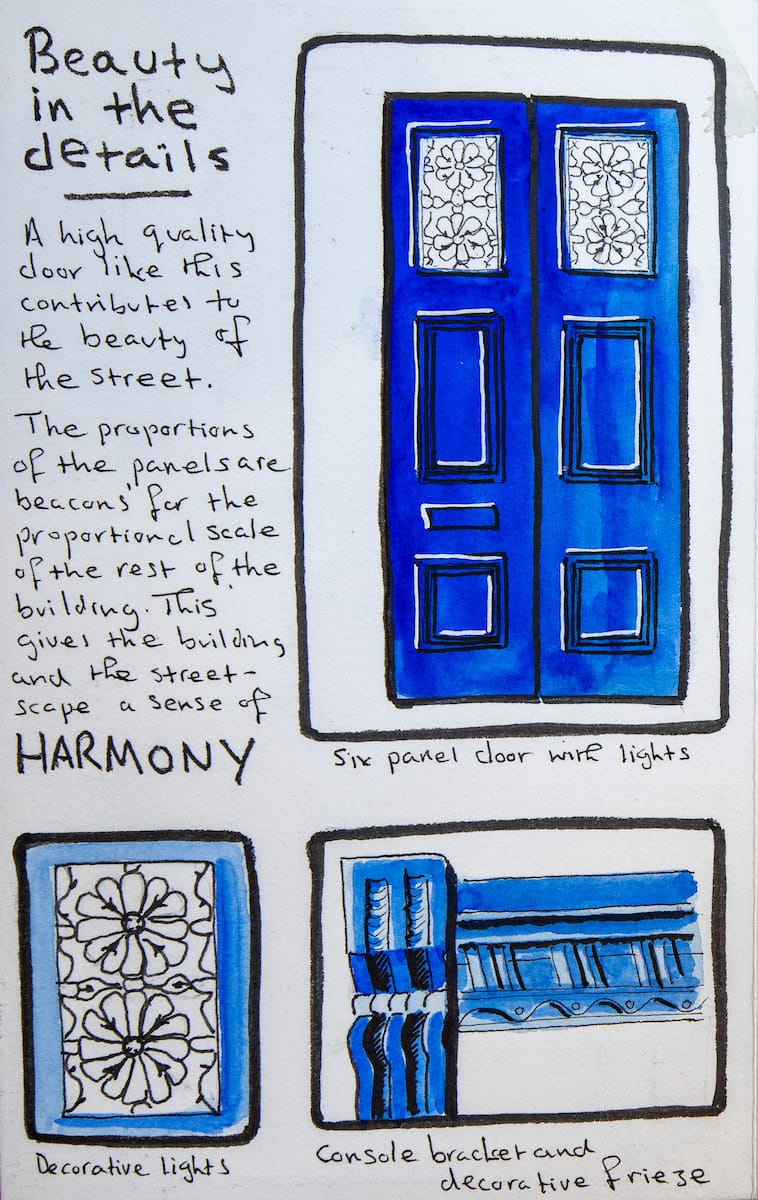 Beauty
in the
details
A high quality
door like this
contributes to
the beauty of
the street.
The proportions
of the panels are
beacons for the
proportional scale
of the rest of the
building. This
gives the building
and the street-
scape a sense of
HARMONY
Six panel door with lights
Decorative lights
Console bracket and
decorative frieze